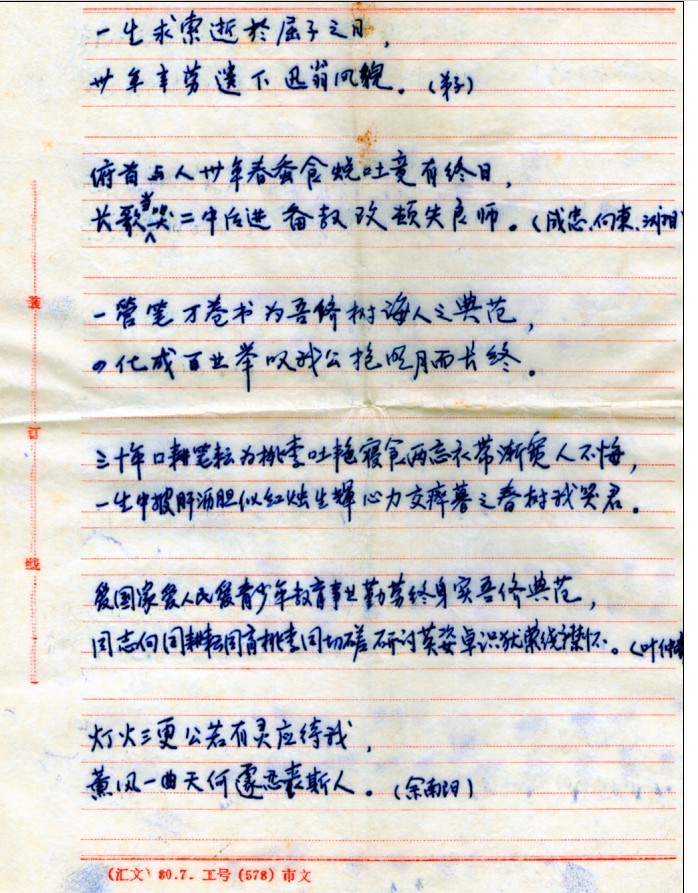 一生求索逝於屈子之日，
卅年辛劳遗下迅翁风貌。（弟子）
俯首与人卅年春蚕食烛吐竟有终日，
长歌当哭二中后进备教改顿失良师。（成忠、向东、
一管笔万卷书为吾侪树诲人之典范，
化成百业举叹我公抱明月而长终。
三十年口耕笔耘为桃李吐艳寝食两忘衣带渐宽人不悔，
一生中披肝沥胆似红烛生辉心力交瘁暮之春树我哭君。
爱国家爱人民爱青少年教育事业勤劳终身实吾侪典范，
同志向同耕耘同育桃李同切磋研讨英姿卓识犹萦绕襟怀。（叶
灯火三更公若有灵应待我，
薰风一曲天何遽恶丧斯人。（余南阳）
装
订
线
（汇文）80.7. 工号（578）市文